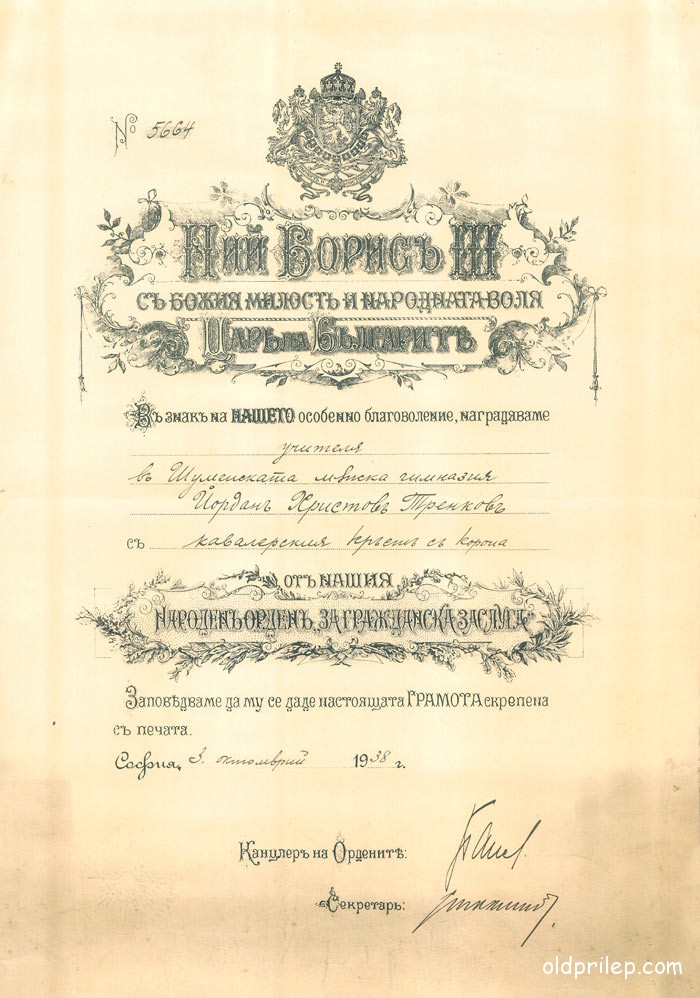 № 5664
Ний Борисъ III
съ Божия милость и народната воля
Царь на Българитѣ
Въ знакъ на НАШЕТО особенно благоволение, наградяваме
учителя
въ Шуменската мѫжка гимназия
Йорданъ Христовъ Тренковъ
съ кавалерския кръстъ съ корона
отъ нашия
Народенъ орденъ „За гражданска заслуга“
Заповѣдваме да му се даде настоящата ГРАМОТА скрепена
съ печата.
София, 3. октомврий 1938 г.
Канцлеръ на Орденитѣ:
Секретарь:
oldprilep.com